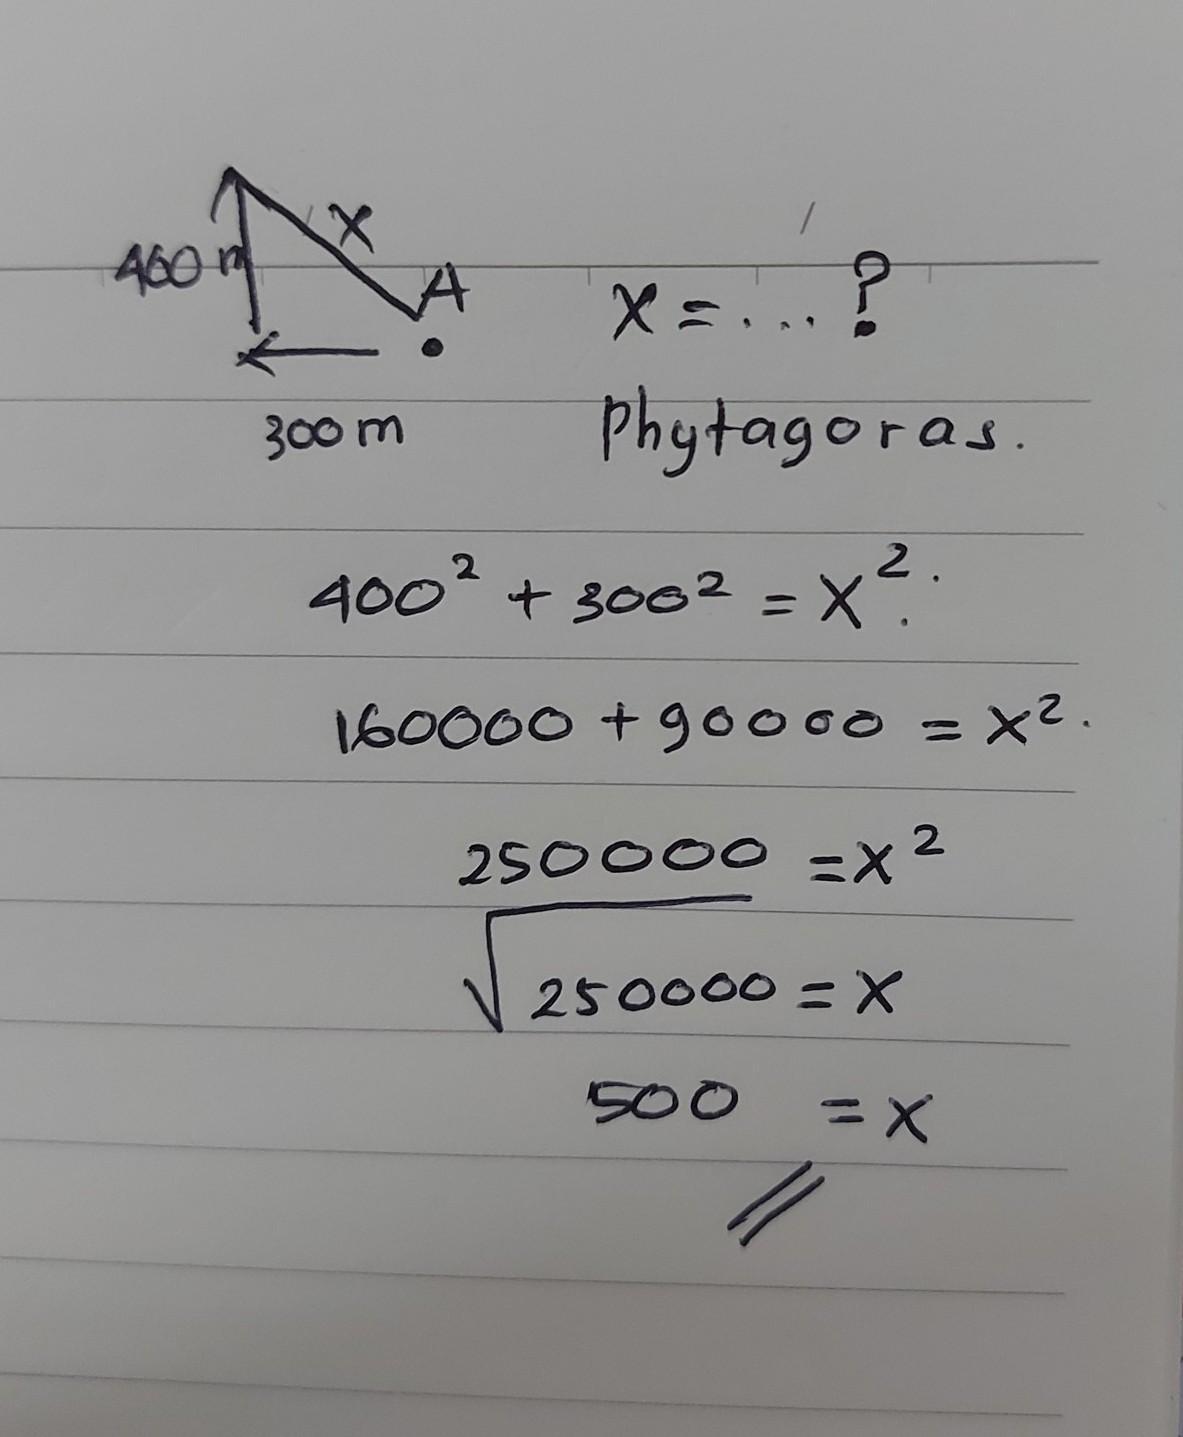 X
400 m
A
X = . ... ?
300 m
Phytagoras.
400² + 300² = X².
160000 + 90000 = X².
250000 = X²
√250000 = X
500 = X